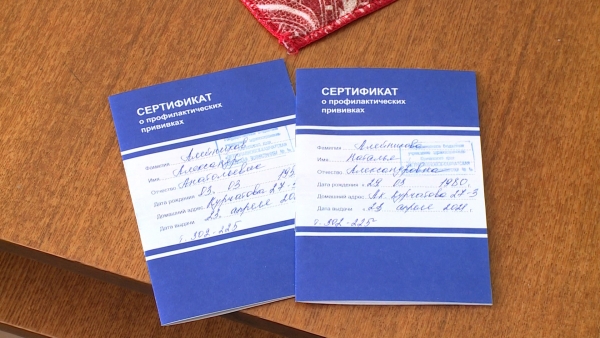 СЕРТИФИКАТ
о профилактических
прививках
Фамилия
Имя Александр
Отчество Анатольевич
Дата рождения 13. 03 193
Домашний адрес Курчатова 27-3
Дата выдачи 23 апреле 20
с. 302-225
СЕРТИФИКАТ
о профилактических
прививках
Фамилия
Имя Наталья
Отчество Александровна
Дата рождения 29 03 1980
Домашний адрес Ак. Курчатова 27-3
Дата выдачи 23 апреле 2021.
с. 302-225